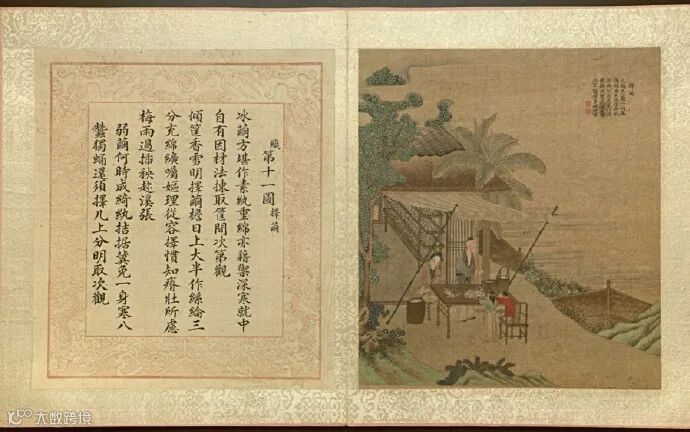 織第十一圖 擇繭
冰繭方堪作素紈重綿亦藉禦深寒就中
自有因材法揀取筐間次第觀
傾筐香雪明擇繭檐日上大半作絲綸三
分充綿纊嫗理從容擇慣知瘠壯所慮
梅雨過插秧趁溪張
弱繭何時成綺紈拮据冀免一身寒八
蠶獨蛹還須擇几上分明取次觀
擇繭
大数跨境